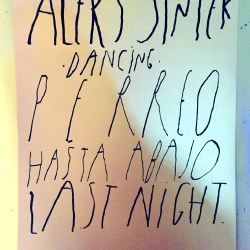 ALEKS SINTEK
·DANCING·
PERREO
HAŠTA ABAJO
LAST NIGHT.